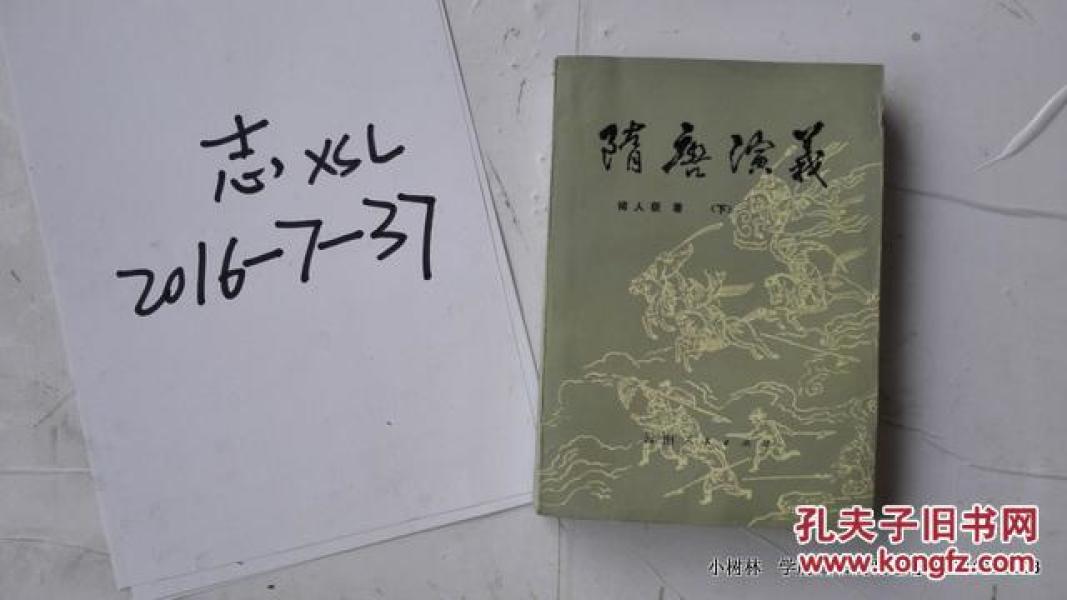 志, XSL
2016-7-37
隋唐演義
褚人获 著 (下)
人民出版社
孔夫子旧书网
www.kongfz.com
小树林 学